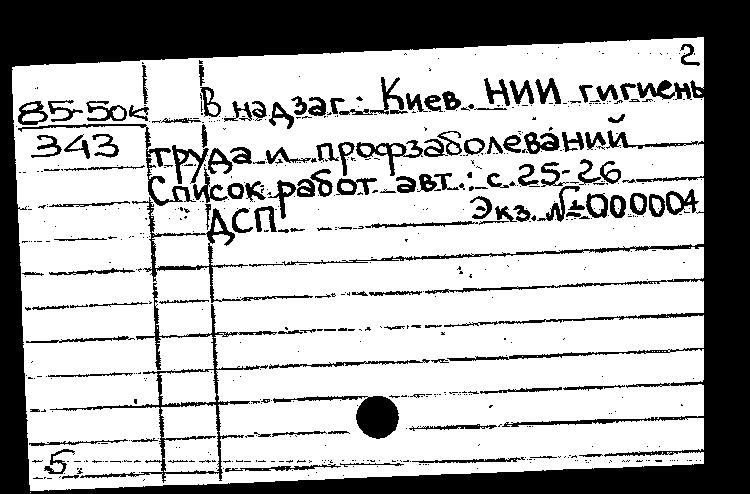 2
85-50к
343
В надзаг.: Киев. НИИ гигиены
труда и профзаболеваний.
Список работ авт.: с.25-26
ДСП. Экз. №000004
5